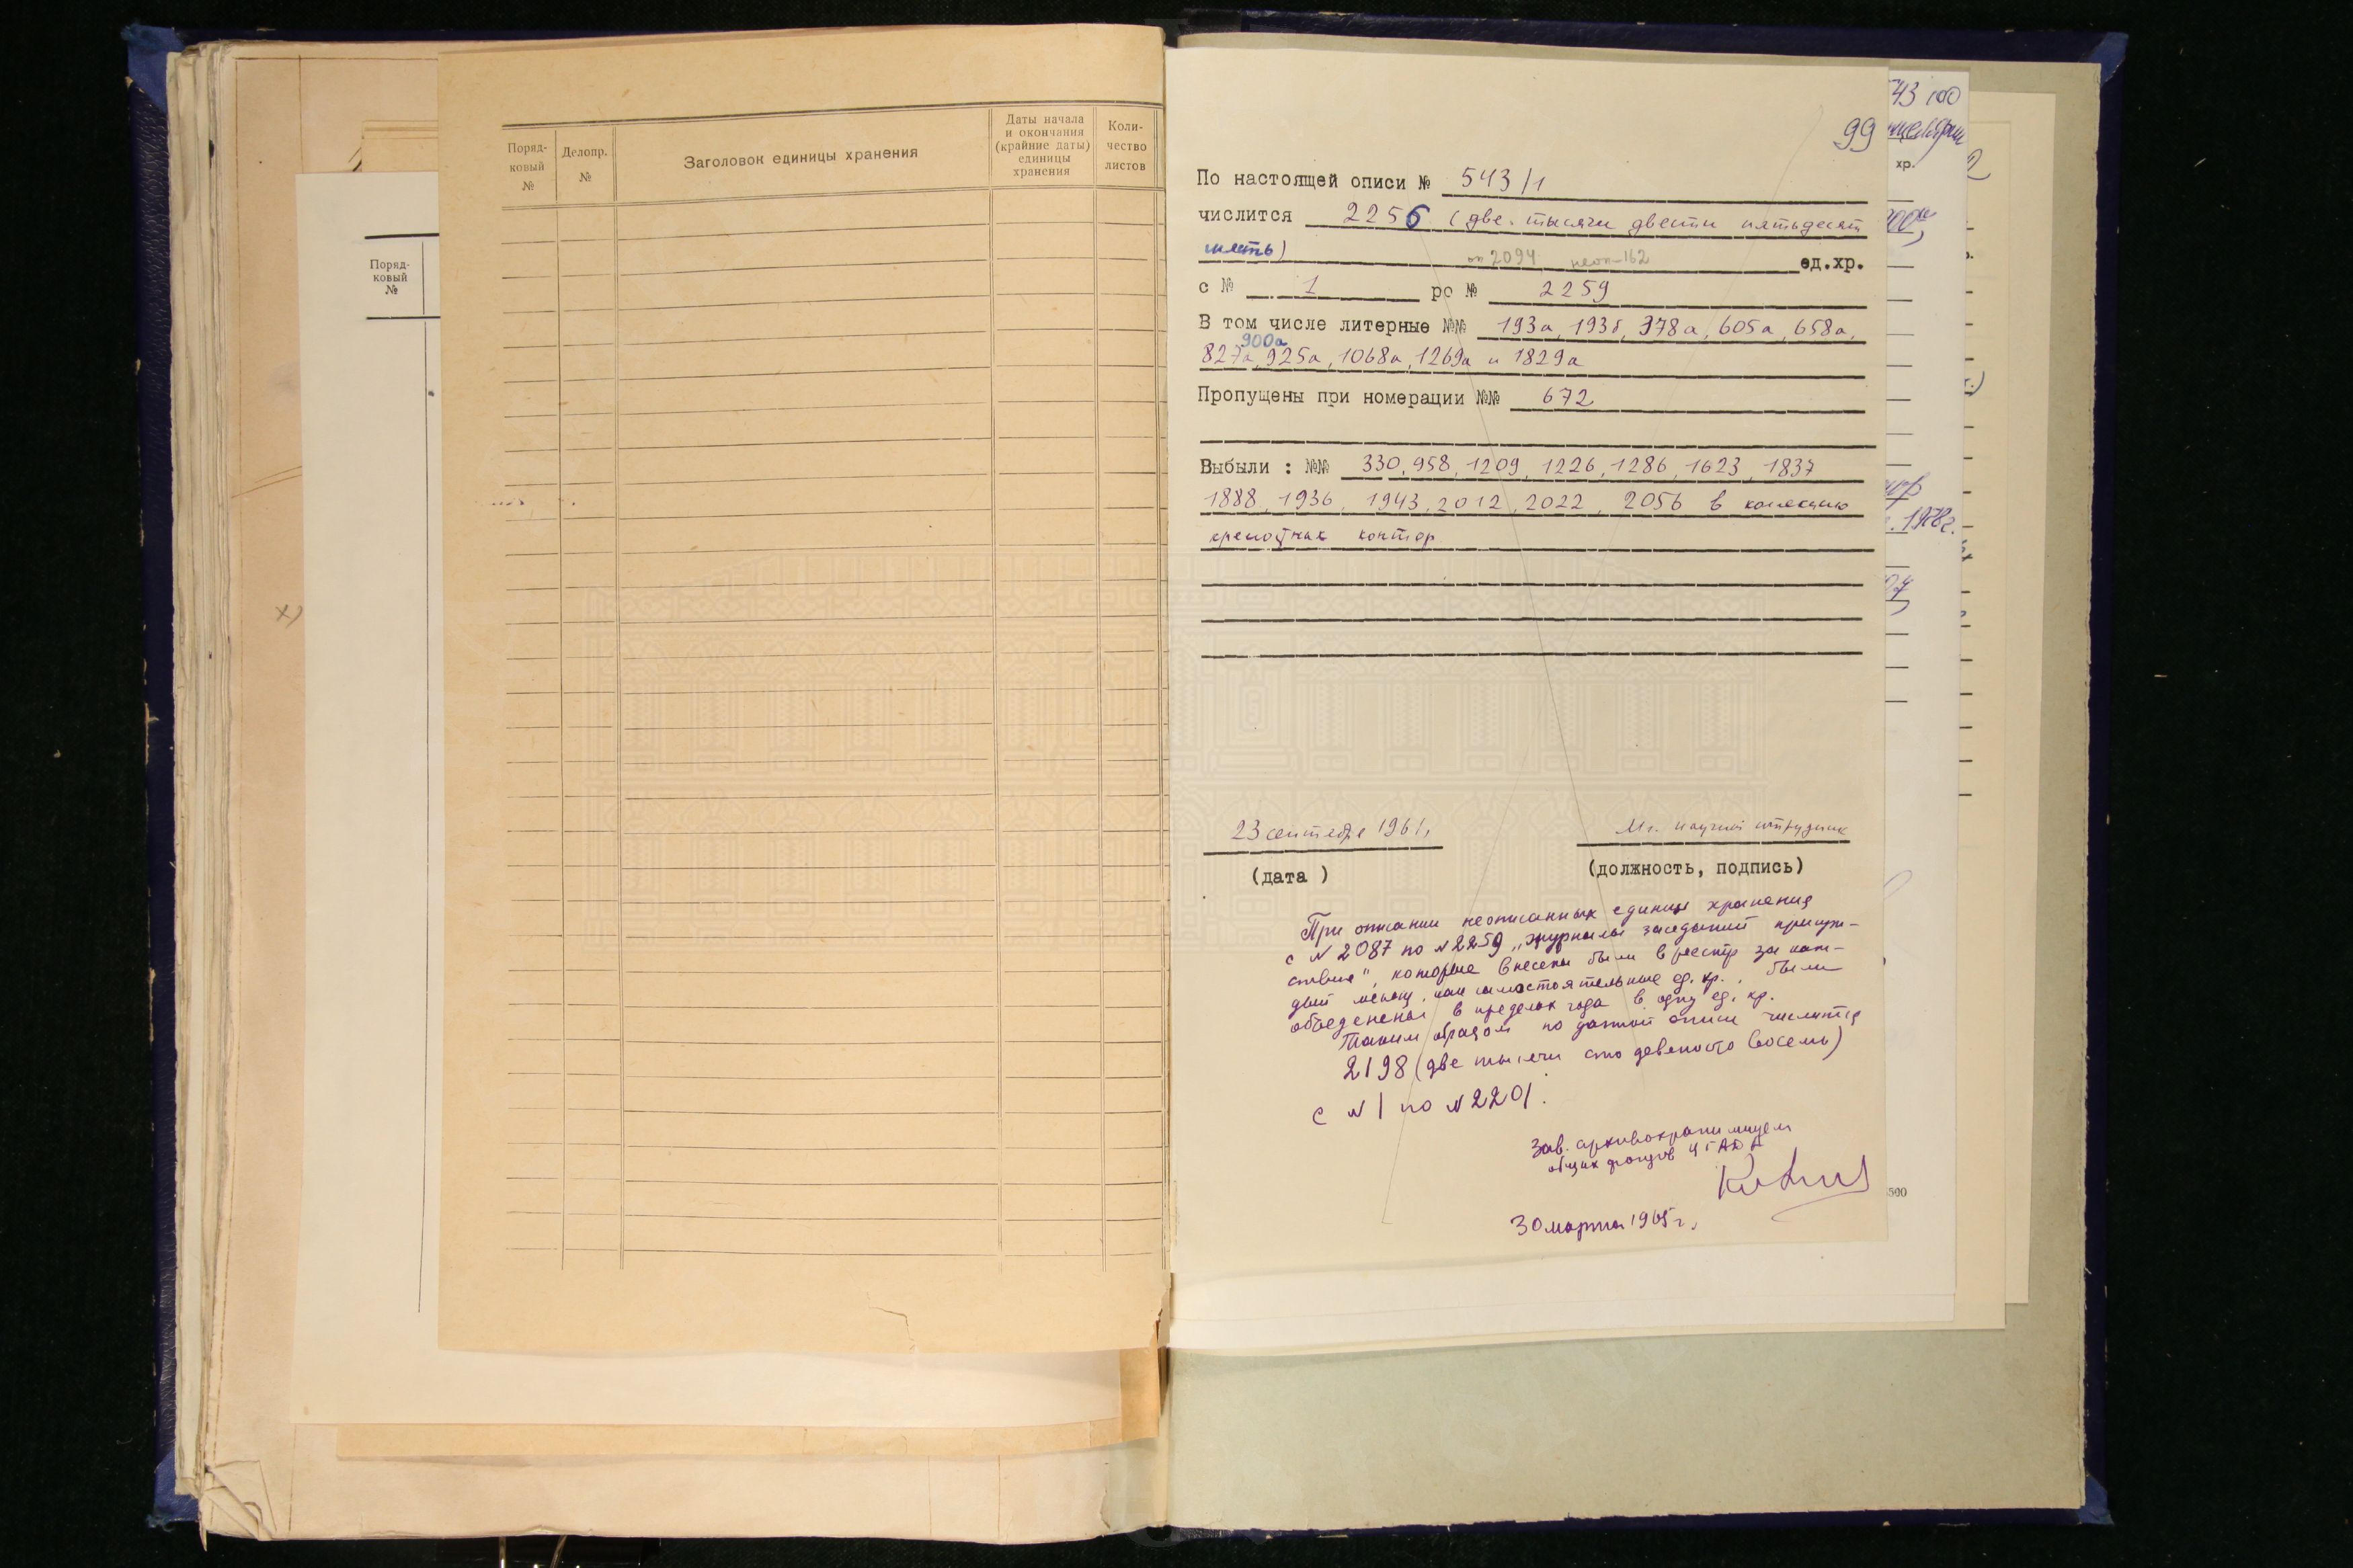 Поряд-
ковый
№
Поряд-
ковый
№
Делопр.
№
Заголовок единицы хранения
Даты начала
и окончания
(крайние даты)
единицы
хранения
Коли-
чество
листов
99
По настоящей описи № 543/1
числится 2256 (две тысячи двести пятьдесят
шесть) оп 2094 неоп-162 ед.хр.
с № 1 по № 2259
В том числе литерные №№ 193а, 193б, 378а, 605а, 658а,
900а
827а, 925а, 1068а, 1269а и 1829а
Пропущены при номерации №№ 672
Выбыли : №№ 330, 958, 1209, 1226, 1286, 1623, 1837
1888, 1936, 1943, 2012, 2022, 2056 в коллекцию
крепостных контор
23 сентября 1961,
Мл. научный сотрудник
(дата )
(должность, подпись)
При описании неописанных единиц хранения
с N 2087 по N 2259 „журналы заседаний присут-
ствия", которые внесены были в реестр за каж-
дый месяц, как самостоятельные ед. хр., были
объеденены в пределах года в одну ед. хр.
Таким образом по данной описи числится
2198 (две тысячи сто девяносто восемь)
с N 1 по N 2201.
Зав. архивохранилищем
общих фондов ЦГАДА
30 марта 1965 г.
43 100
хр.
900а
. 1978г.
500
х)